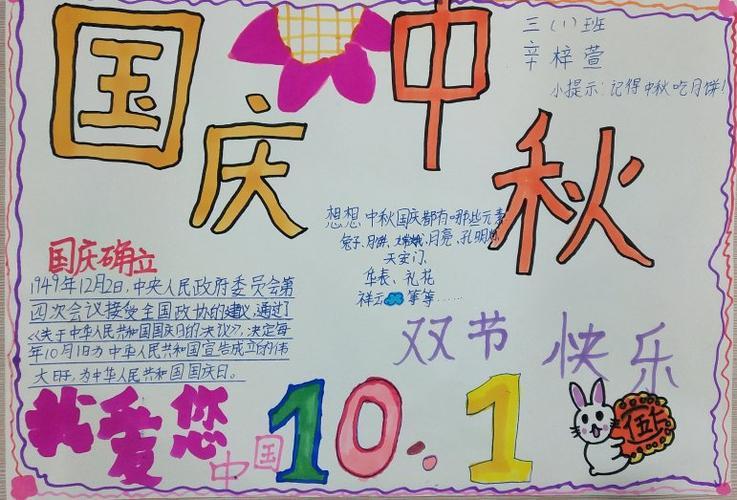 国庆
中秋
三（1）班
辛梓萱
小提示：记得中秋吃月饼！
国庆确立
1949年12月2日，中央人民政府委员会第
四次会议接受全国政协的建议，通过了
《关于中华人民共和国国庆日的决议》，决定每
年10月1日为中华人民共和国宣告成立的伟
大日子，为中华人民共和国国庆日。
想想中秋国庆都有哪些元素
兔子、月饼、嫦娥、月亮、孔明灯
天安门、
华表、礼花
祥云 等等……
双节快乐
我爱您
中国
10.1
五仁